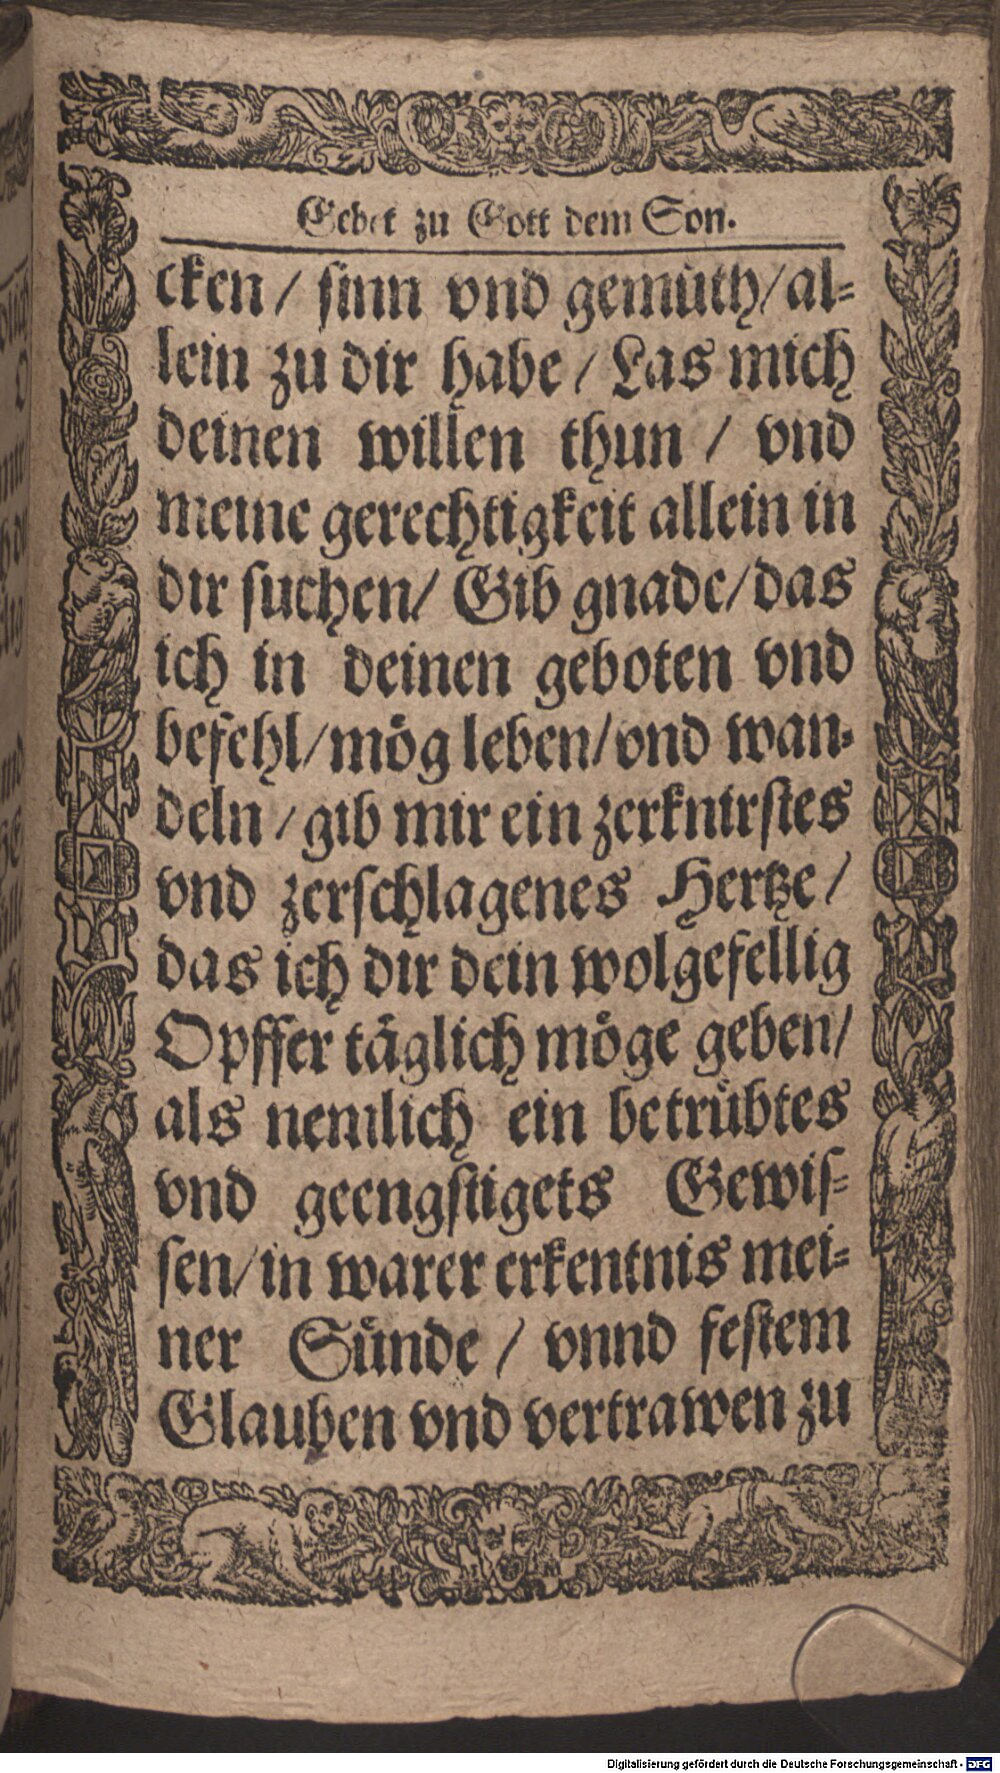 Gebet zu Gott dem Son.
cken / sinn vnd gemüth / al=
lein zu dir habe / Las mich
deinen willen thun / vnd
meine gerechtigkeit allein in
dir suchen / Gib gnade / das
ich in deinen geboten vnd
befehl / mög leben / vnd wan=
deln / gib mir ein zerknirstes
vnd zerschlagenes Hertze /
das ich dir dein wolgefellig
Opffer täglich möge geben /
als nemlich ein betrübtes
vnd geengstigets Gewis=
sen / in warer erkentnis mei=
ner Sünde / vnnd festem
Glauben vnd vertrawen zu
Digitalisierung gefördert durch die Deutsche Forschungsgemeinschaft - DFG